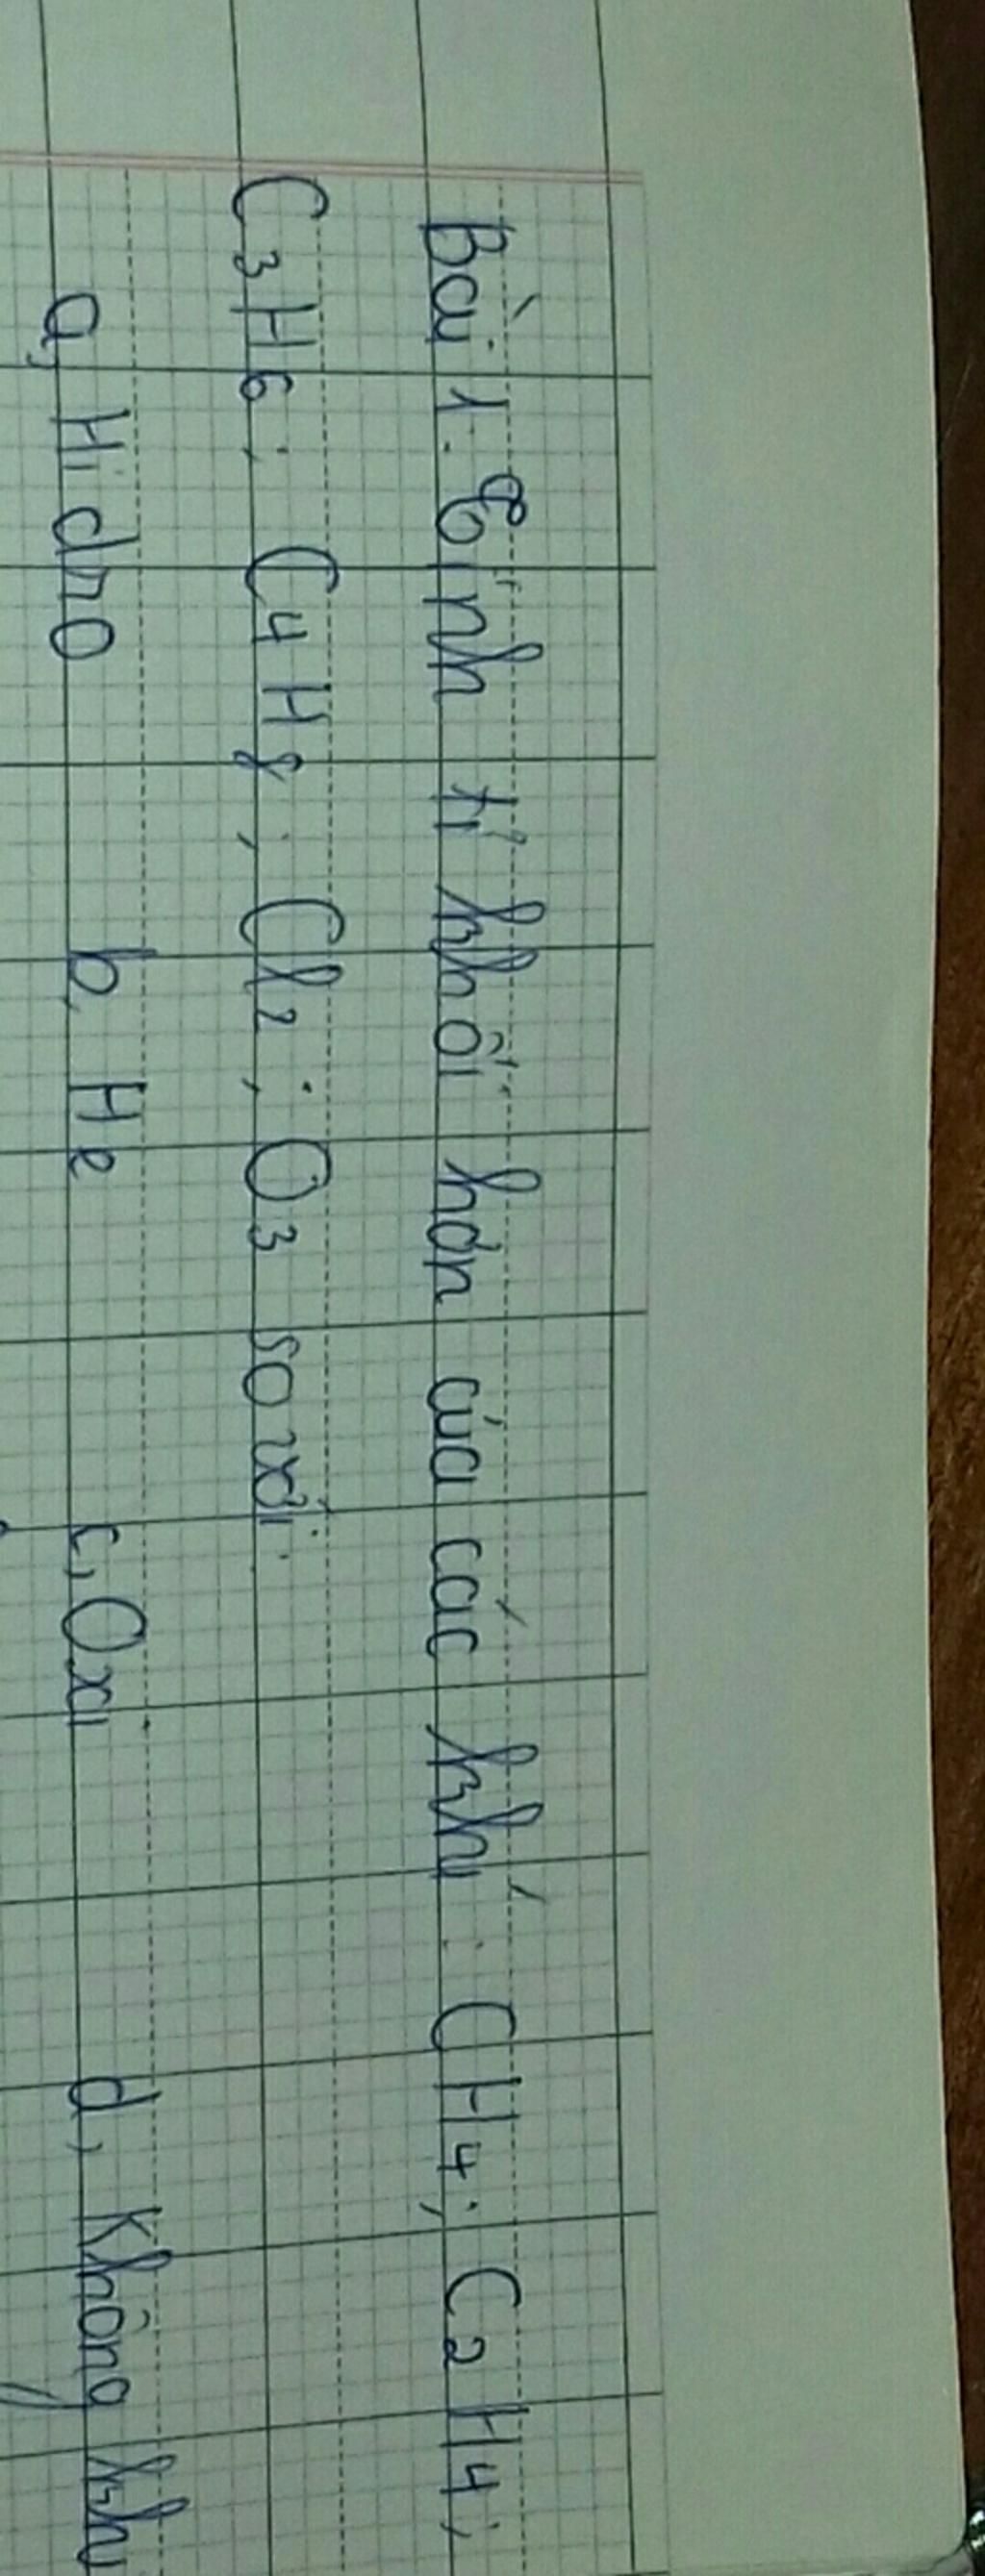 Bài 1. Tính tỉ khối hơn của các khí : CH4; C2H4;
C3H6; C4H8; Cl2; O3 so với:
a, Hidro b, He c, Oxi d, Không khí